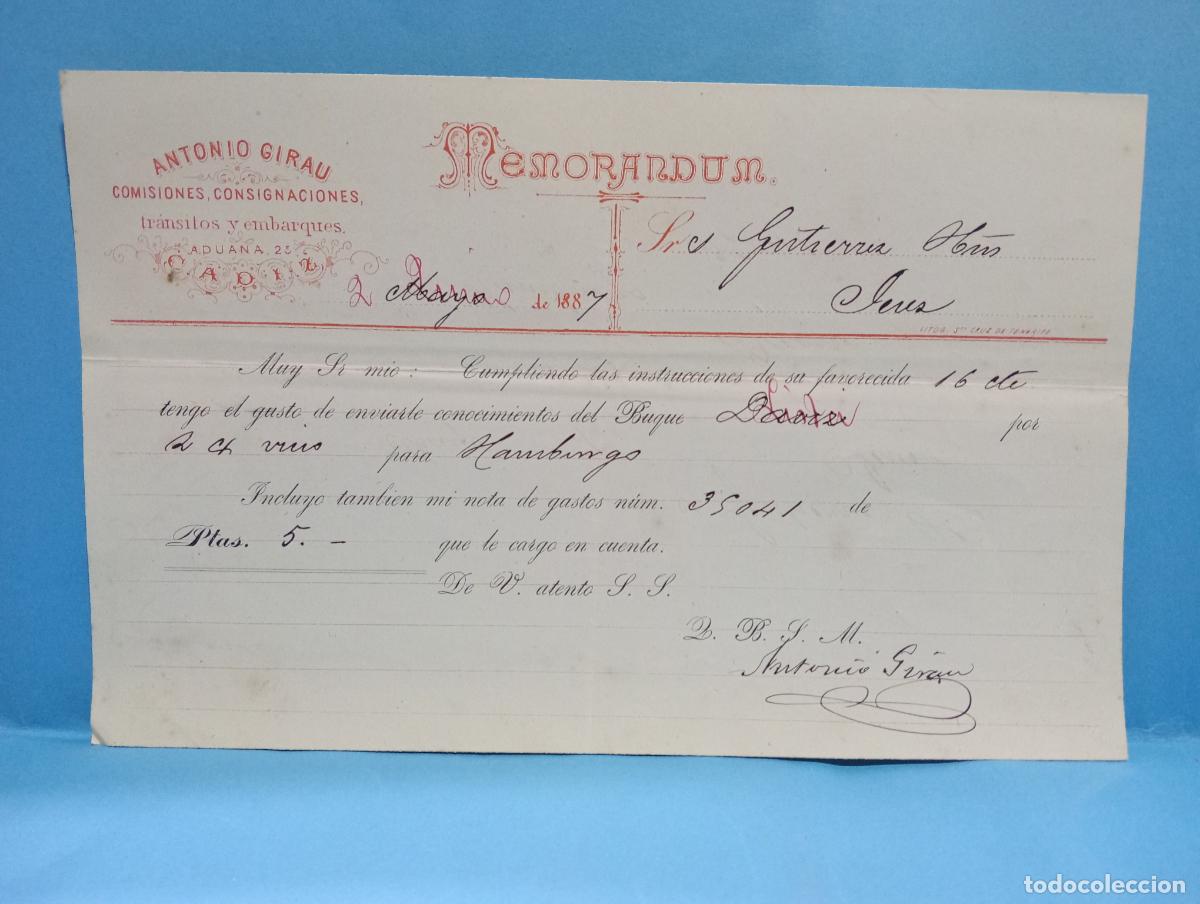 ANTONIO GIRAU
COMISIONES, CONSIGNACIONES,
tránsitos y embarques.
ADUANA, 23
CADIZ
MEMORANDUM.
2 Mayo de 1887
Sres Gutierrez Hnos
Jerez
LITOG. STA CRUZ DE TENERIFE
Muy Sr mio: Cumpliendo las instrucciones de su favorecida 16 cte
tengo el gusto de enviarle conocimientos del Buque por
2 vino para Hamburgo
Incluyo tambien mi nota de gastos núm. 35041 de
Ptas. 5. - que le cargo en cuenta.
De V. atento S. S.
Q. B. S. M.
Antonio Girau
todocoleccion